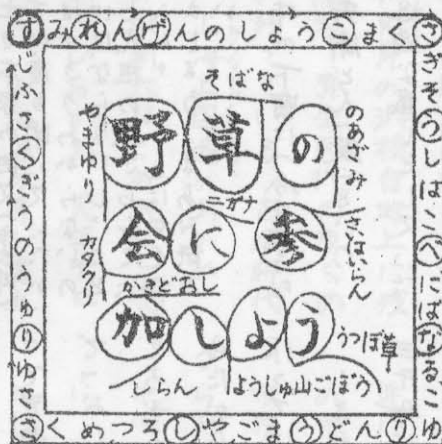 すみれんげんのしょうこまくさ
ぎそうしはこべにばなるこゆ
さくめつろしやごまうどんり
じふさくぎうのうゅりゆさ
そばな
のあざみ
さいはいらん
やまゆり
野草の
ニガナ
会に参
カタクリ
かきどおし
加しよう
うつぼ草
しらん
ようしゅ山ごぼう